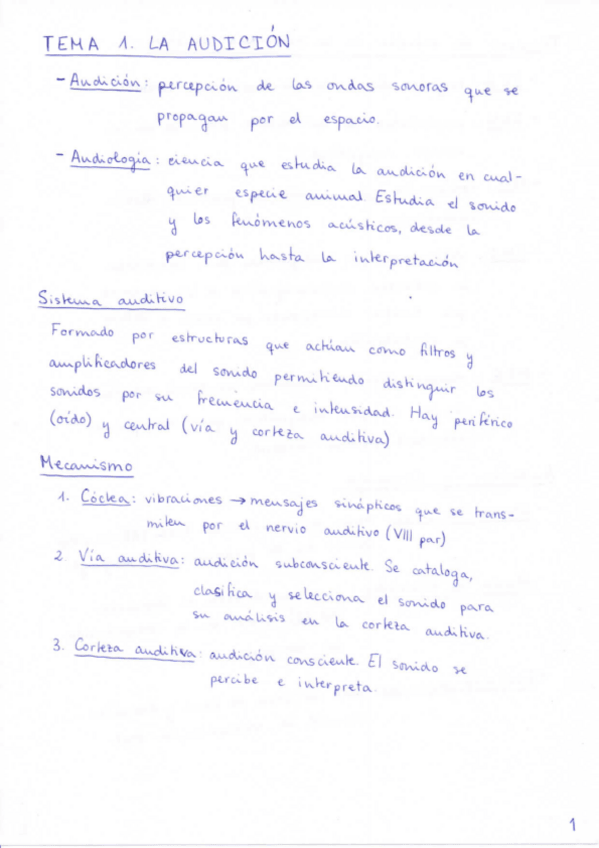 TEMA 1. LA AUDICIÓN
- Audición: percepción de las ondas sonoras que se
propagan por el espacio.
- Audiología: ciencia que estudia la audición en cual-
quier especie animal. Estudia el sonido
y los fenómenos acústicos, desde la
percepción hasta la interpretación
Sistema auditivo
Formado por estructuras que actúan como filtros y
amplificadores del sonido permitiendo distinguir los
sonidos por su frecuencia e intensidad. Hay periférico
(oído) y central (vía y corteza auditiva)
Mecanismo
1. Cóclea: vibraciones → mensajes sinápticos que se trans-
miten por el nervio auditivo (VIII par)
2. Vía auditiva: audición subconsciente. Se cataloga,
clasifica y selecciona el sonido para
su análisis en la corteza auditiva.
3. Corteza auditiva: audición consciente. El sonido se
percibe e interpreta.
1